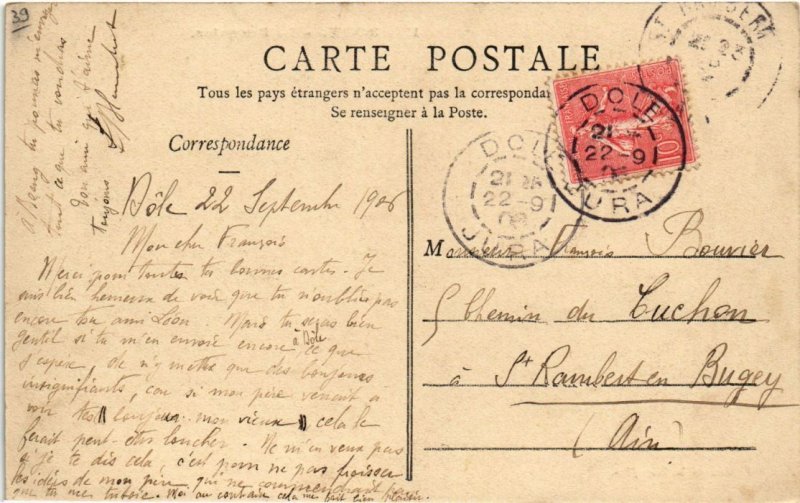 39
CARTE POSTALE
Tous les pays étrangers n'acceptent pas la correspondan
Se renseigner à la Poste.
Correspondance
Dôle 22 Septembre 1906
Mon cher François
Merci pour toutes tes bonnes cartes. Je
suis bien heureux de voir que tu n'oublies pas
encore ton ami Léon. Mais tu serais bien
gentil si tu m'en envoie encore à Dôle ce que
j'espère, de n'y mettre que des bonjours
insignifiants, car si mon père venait à
voir tes "toujours mon vieux" cela le
ferait peut-être loucher. Ne m'en veux pas
si je te dis cela, c'est pour ne pas froisser
les idées de mon père qui ne comprendrait pas
que tu me tutoie. Moi au contraire cela me fait bien plaisir.
à Bourg tu pourras m'envoyer
tout ce que tu voudras
ton ami qui t'aime
toujours
Monsieur François Bouvier
5 Chemin du Tuchon
à St Rambert en Bugey
(Ain)
DOLE
21
22-9
06
JURA
DOLE
21
22-9
JURA
10
ST RAMBERT